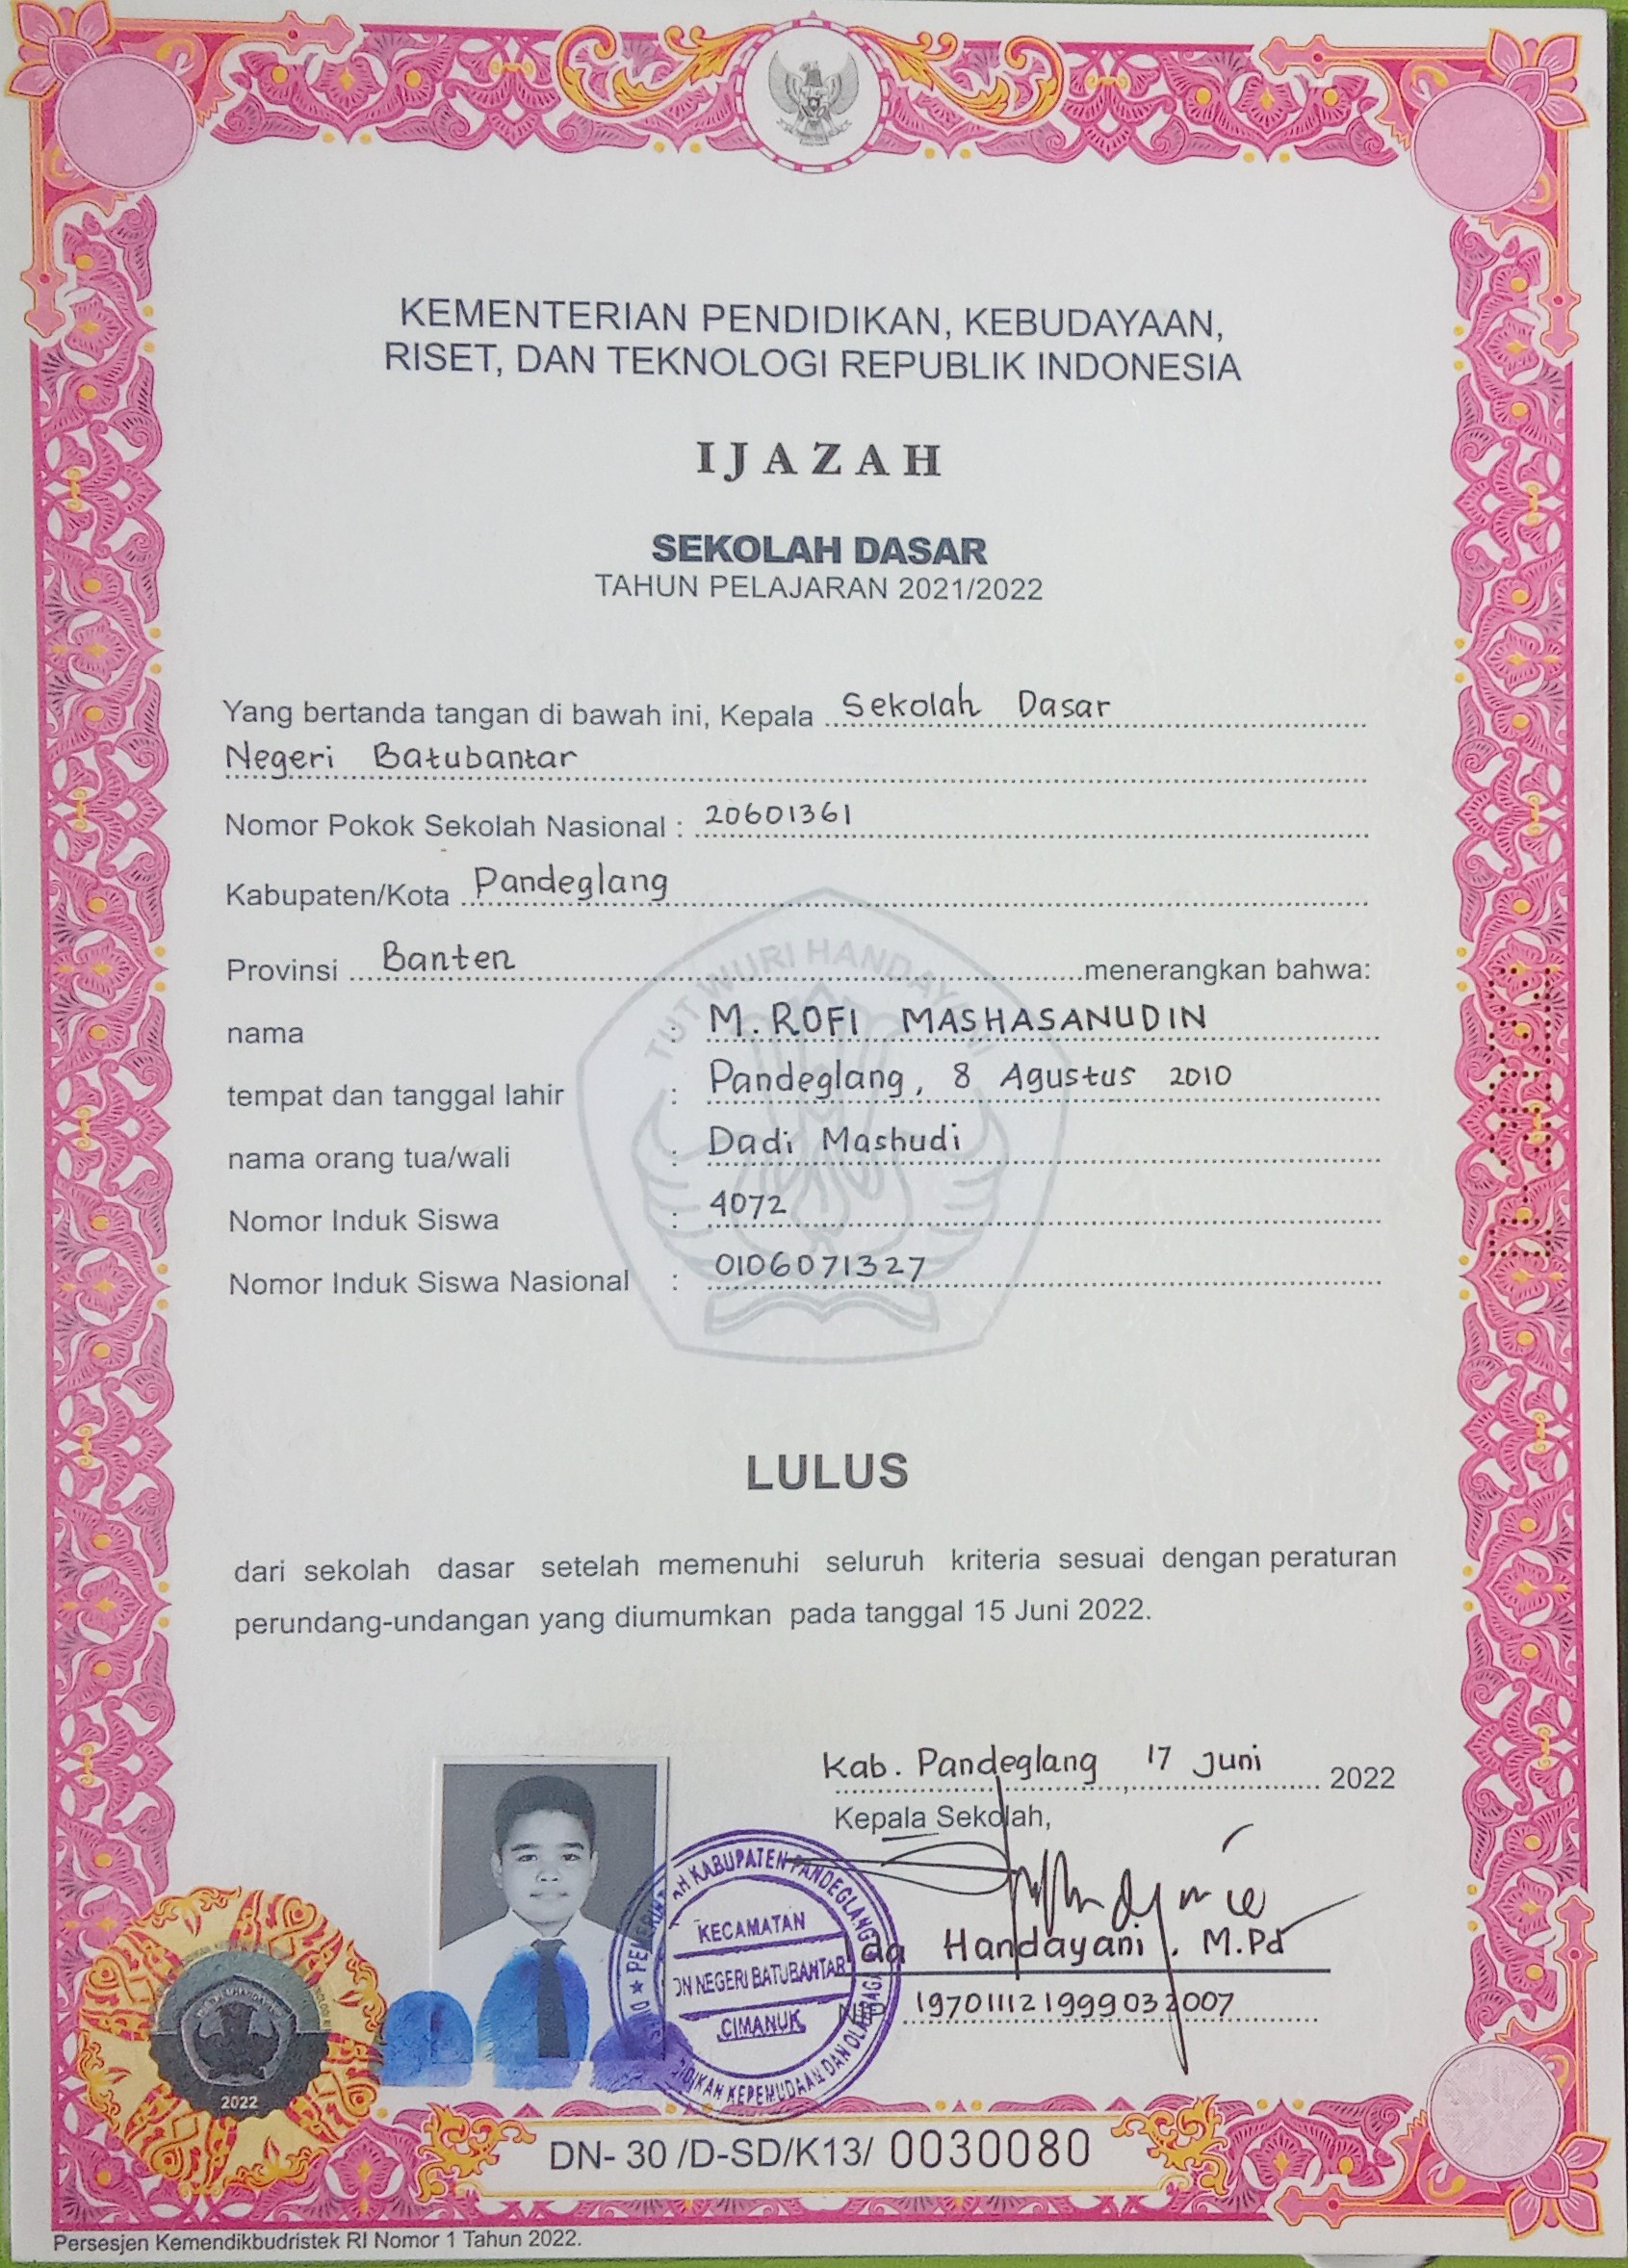 KEMENTERIAN PENDIDIKAN, KEBUDAYAAN,
RISET, DAN TEKNOLOGI REPUBLIK INDONESIA
IJAZAH
SEKOLAH DASAR
TAHUN PELAJARAN 2021/2022
Yang bertanda tangan di bawah ini, Kepala Sekolah Dasar
Negeri Batubantar
Nomor Pokok Sekolah Nasional : 20601361
Kabupaten/Kota Pandeglang
Provinsi Banten menerangkan bahwa:
TUT WURI HANDAYANI
nama : M. ROFI MASHASANUDIN
tempat dan tanggal lahir : Pandeglang, 8 Agustus 2010
nama orang tua/wali : Dadi Mashudi
Nomor Induk Siswa : 4072
Nomor Induk Siswa Nasional : 0106071327
LULUS
dari sekolah dasar setelah memenuhi seluruh kriteria sesuai dengan peraturan
perundang-undangan yang diumumkan pada tanggal 15 Juni 2022.
Kab. Pandeglang, 17 Juni 2022
Kepala Sekolah,
KABUPATEN PANDEGLANG
KECAMATAN
DN NEGERI BATUBANTAR
CIMANUK
DIDIKAN KEPEMUDAAN DAN OLAHRAGA
Ida Handayani, M.Pd
NIP 197011121999032007
2022
DN- 30 /D-SD/K13/ 0030080
Persesjen Kemendikbudristek RI Nomor 1 Tahun 2022.